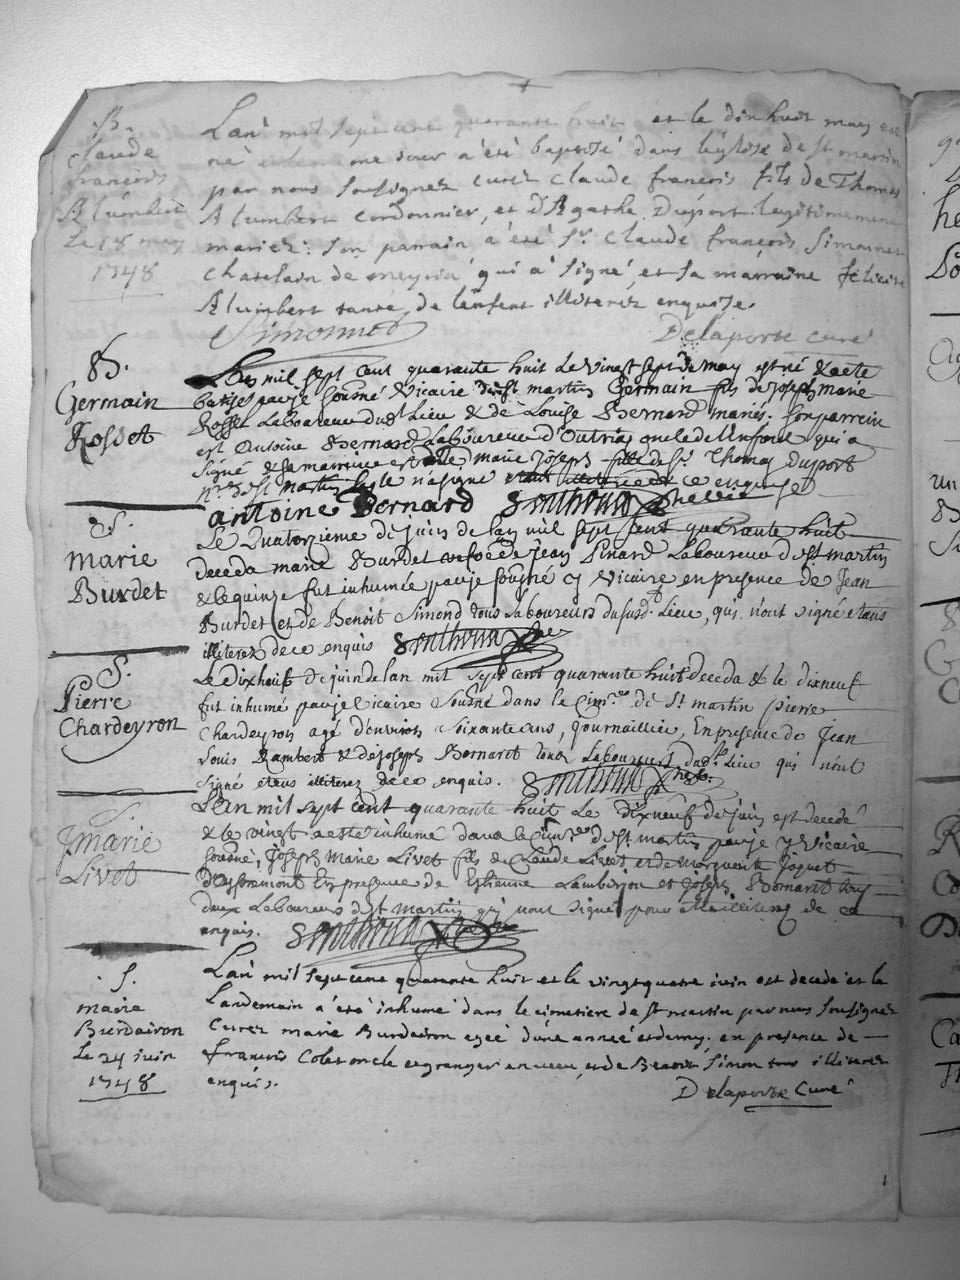 B.
Claude
françois
Alumbert
Le 18 may
1748
L'an mil sept cent quarante huit et le dix huit may est
né et le meme jour a été baptisé dans l'église de st martin
par nous soussignez curez Claude françois fils de Thomas
Alumbert cordonnier, et d'Agathe Duport legitimement
mariez: son parrain a été Sr. Claude françois Simonnet
Chatelain de meyria qui a signé, et sa marraine félicité
Alumbert tante de l'enfent illiterez enquise.
Simonnet Delaporte curé
B.
Germain
Rosset
L'an mil sept cent quarante huit Le vinst sept de may est né & a ete
batisé par je sousné Vicaire de st martin Germain fils de joseph marie
Rosset Laboureur dudt Lieu & de Louise Bernard mariés. son parrein
est Antoine Bernard Laboureur d'Outria oncle de l'enfant qui a
signé & sa marreine est marie joseph fille de sr. Thomas Duport
de st martin la qle n'a signé ce enquise
antoine Bernard Sonthona Vicaire
S.
marie
Burdet
Le Quatorzieme de juin de l'an mil sept cent quarante huit
deceda marie Burdet de jean Pinard Laboureur de st martin
& le quinze fut inhumée par je sousné Vicaire en presence de Jean
Burdet et de Benoit Simond tous Laboureurs du susdt. Lieu, qui n'ont signé etans
illiterez de ce enquis Sonthona
S.
Pierre
Chardeyron
Le dixhouit de juin de l'an mil sept cent quarante huit deceda & le dixneuf
fut inhumé par je Vicaire sousné dans le cimre de St martin pierre
Chardeyron agé d'environ soixante ans, journaillier, En presence de Jean
Louis Rambert & de joseph Bornaret tous Laboureurs dudt Lieu qui n'ont
signé etans illiterez de ce enquis. Sonthona
S.
J marie
Livet
L'an mil sept cent quarante huit Le dixneuf de juin est decedé
& le vingt a esté inhumé dans le cimre de st martin par je Vicaire
sousné, joseph marie Livet fils de Claude Livet et de marguerite joguet
En presence de Estienne Lamberjon et joseph Bornaret tous
deux Laboureurs de st martin qui n'ont signé pour être illiterez de ce
enquis. Sonthona
S.
marie
Burdairon
Le 24 juin
1748
L'an mil sept cent quarante huit et le vingt quatre juin est decedé et le
Landemain a été inhumé dans le cimetiere de st martin par nous soussignez
curez marie Burdairon agéé d'une année et demy. en presence de
françois Colet oncle et granger, et de Benoit Simon tous illiterez
enquis.
Delaporte Curé